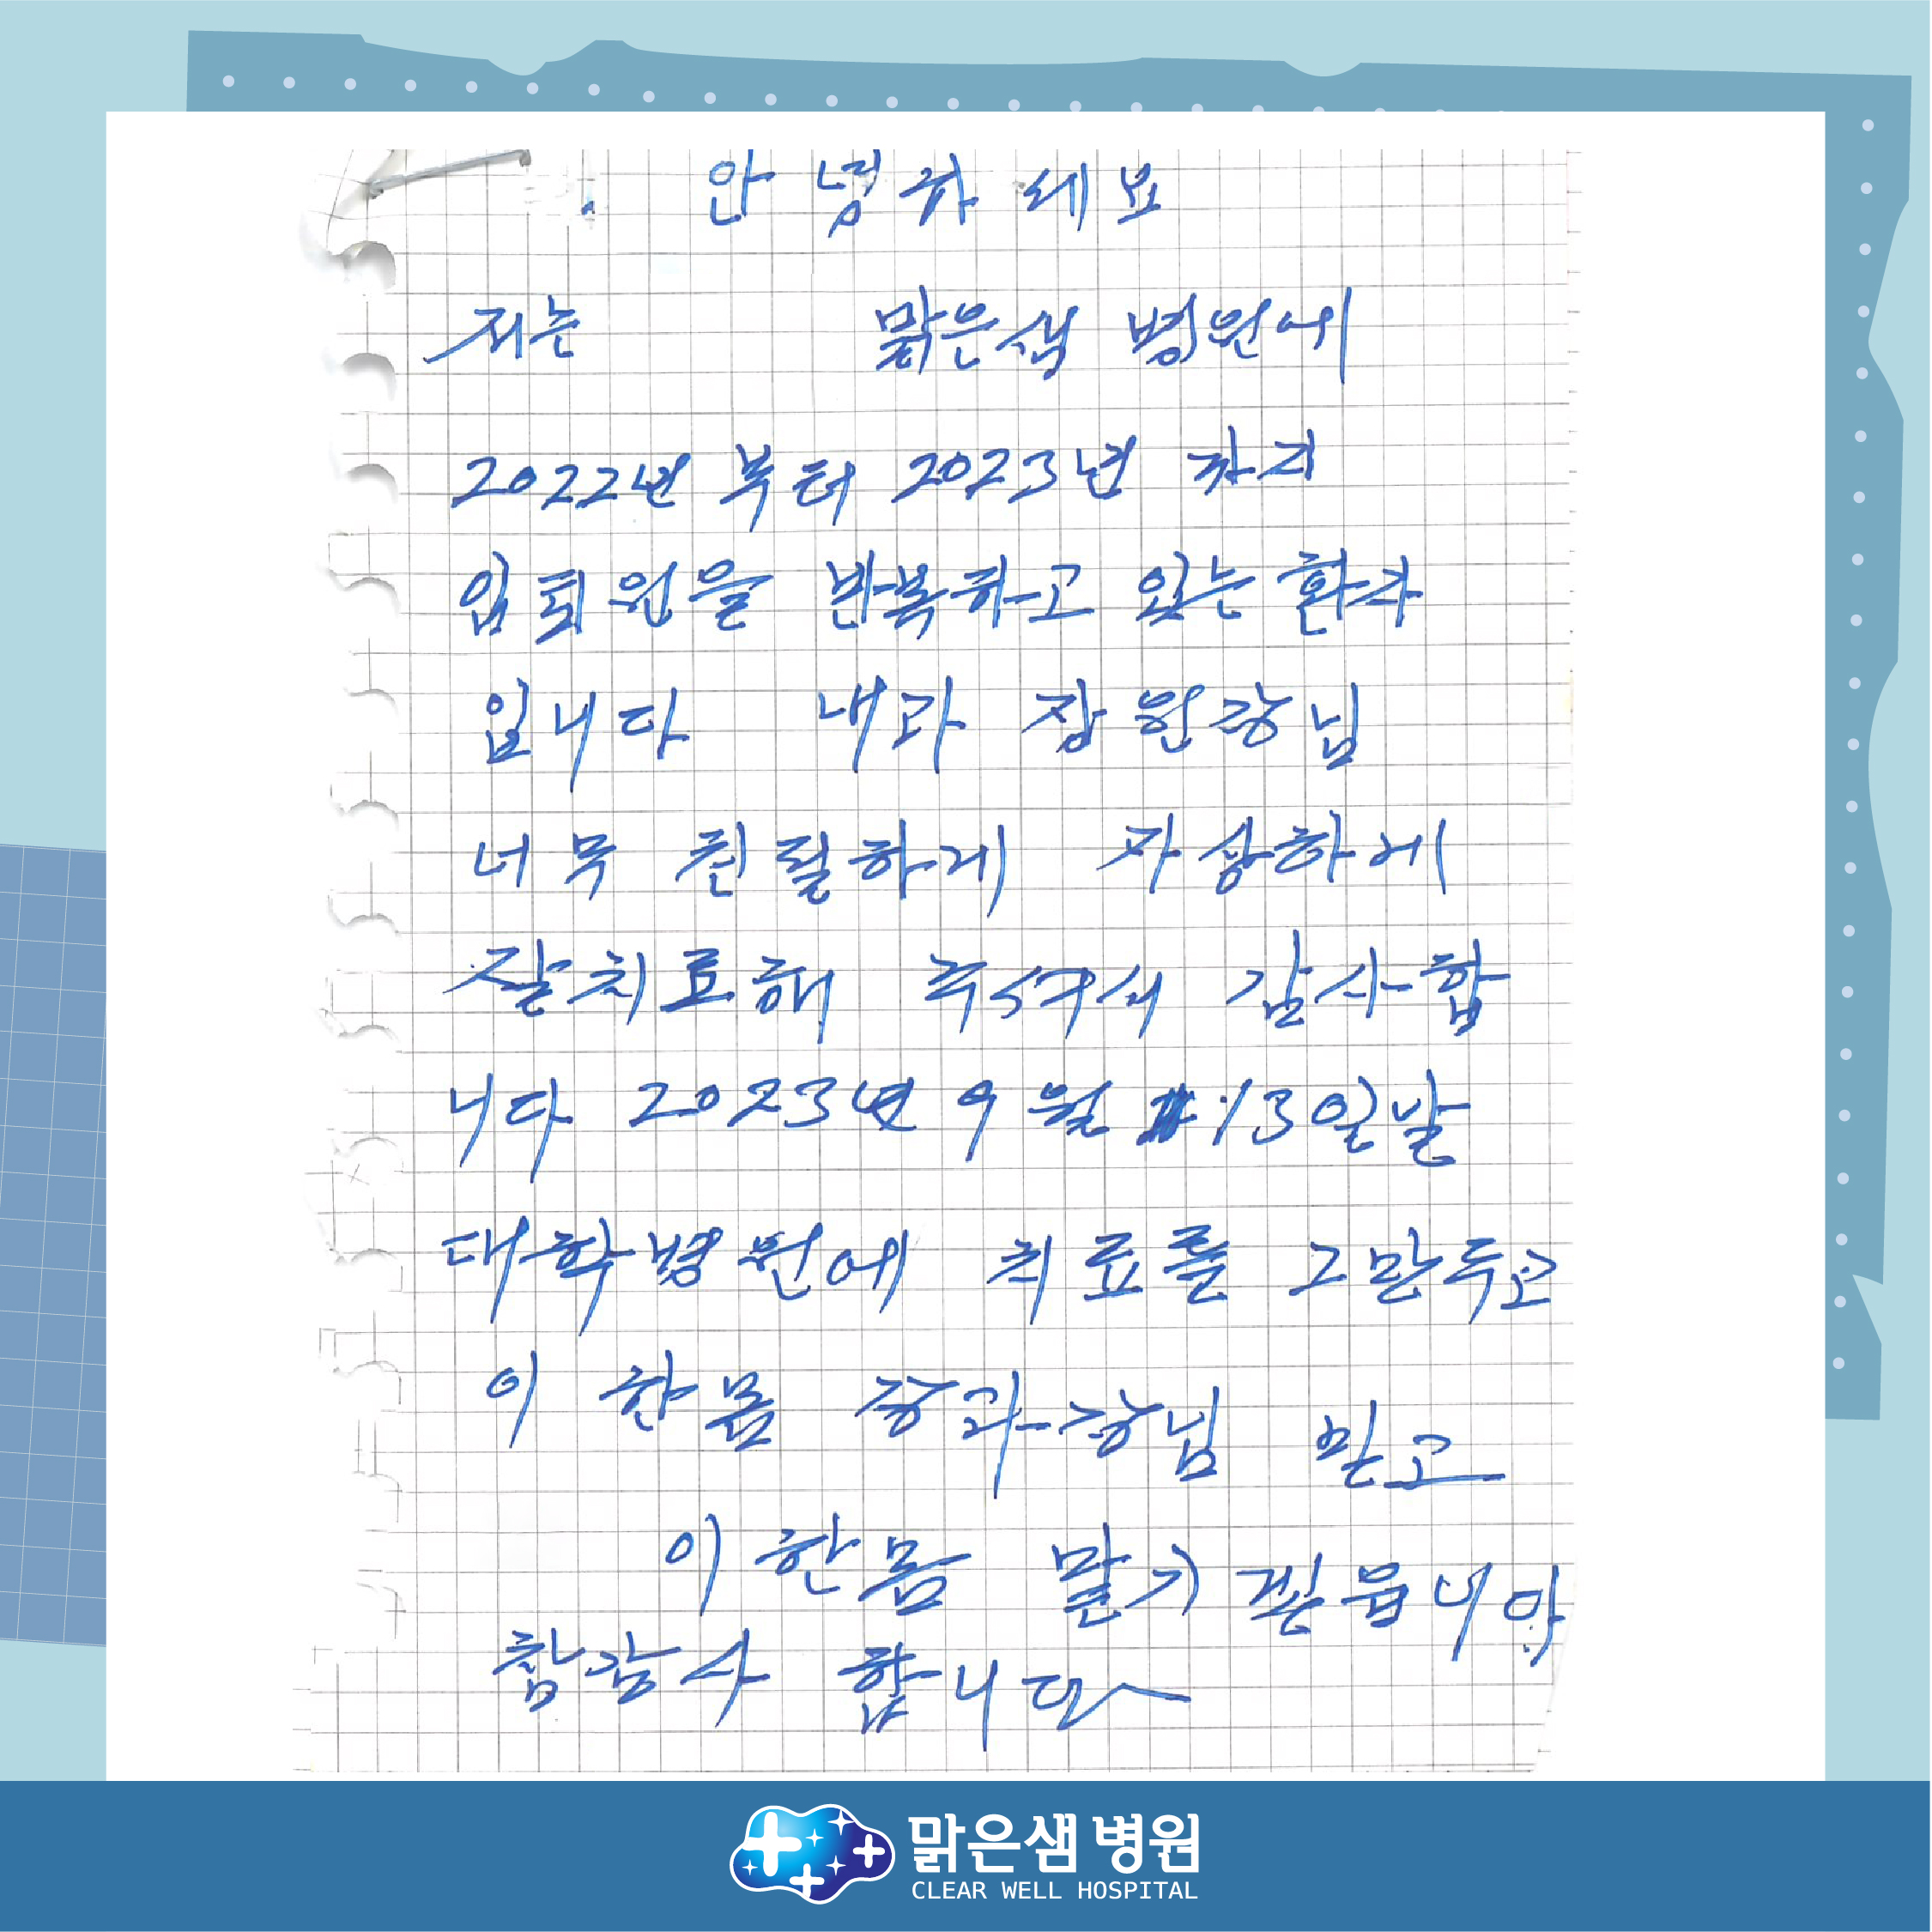 안녕하세요
저는 맑은샘 병원에
2022년 부터 2023년 까지
입퇴원을 반복하고 있는 환자
입니다 내과 장원장님
너무 친절하게 자상하게
잘치료해 주셔서 감사합
니다 2023년 9월 13일날
대학병원에 치료를 그만두고
이 한몸 장과장님 믿고
이 한몸 맡기 읍니다
참감사 합니다
맑은샘 병원
CLEAR WELL HOSPITAL